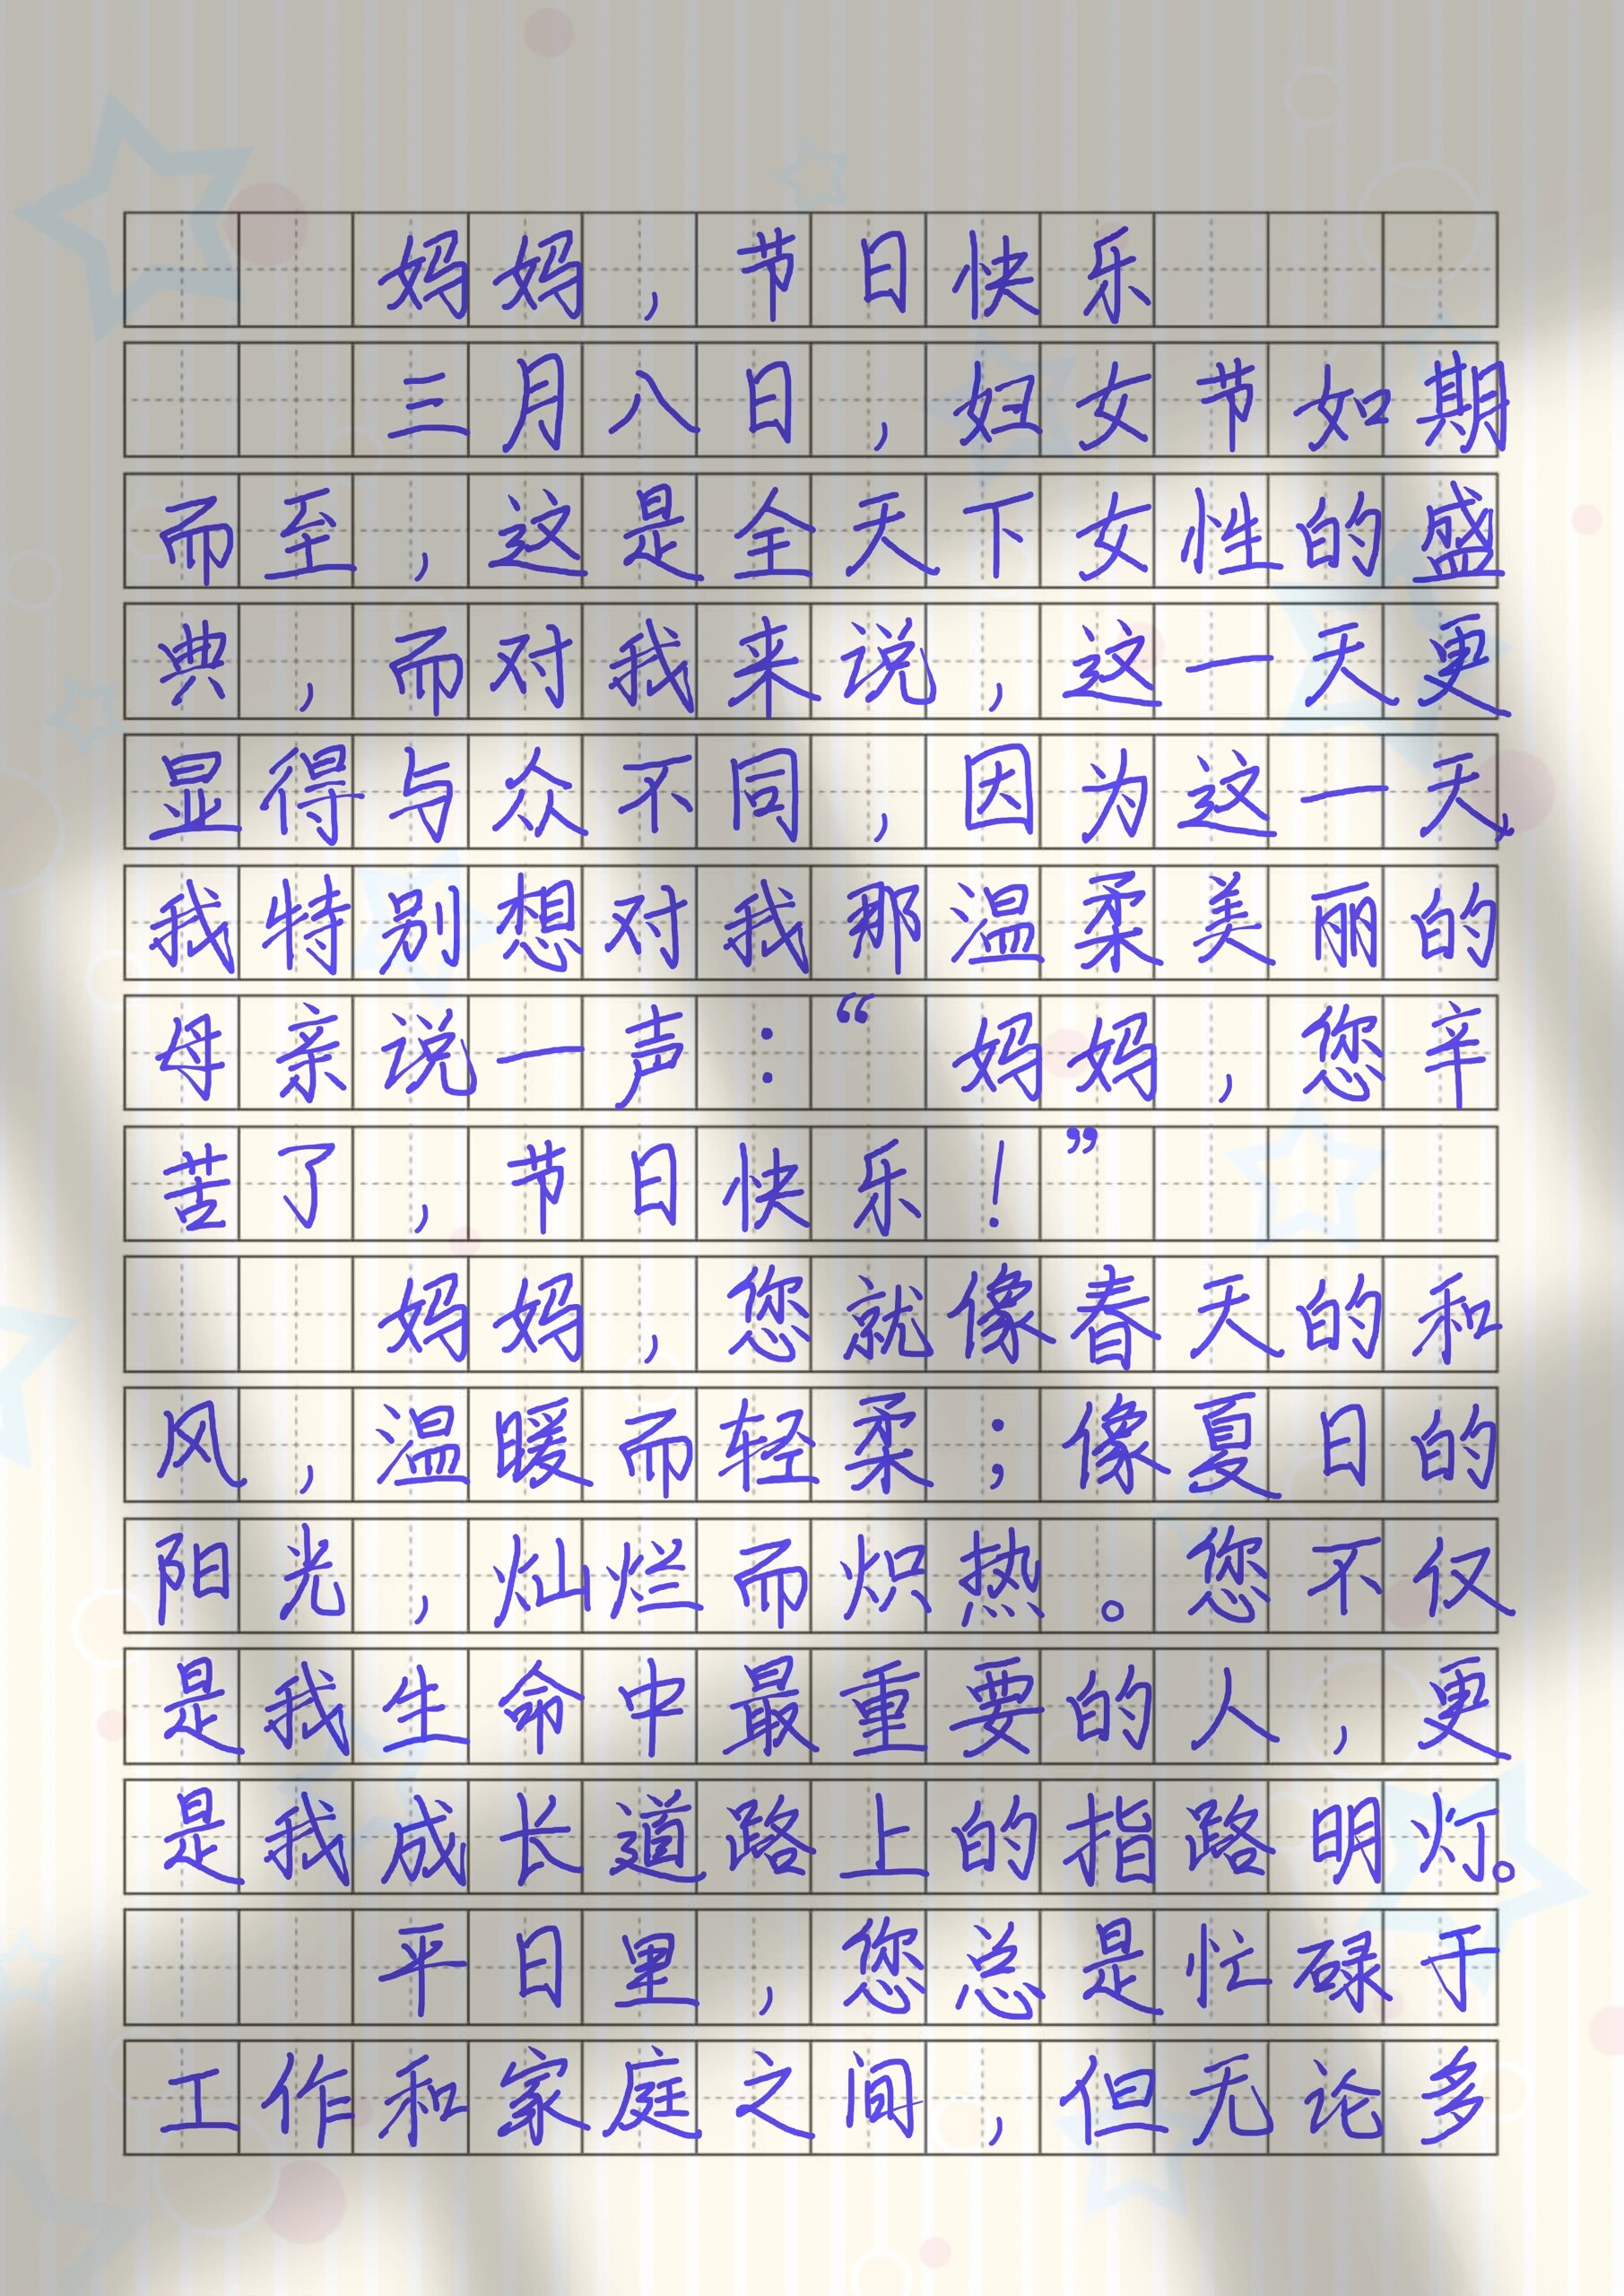 妈妈，节日快乐
三月八日，妇女节如期
而至，这是全天下女性的盛
典，而对我来说，这一天更
显得与众不同，因为这一天，
我特别想对我那温柔美丽的
母亲说一声：“妈妈，您辛
苦了，节日快乐！”
妈妈，您就像春天的和
风，温暖而轻柔；像夏日的
阳光，灿烂而炽热。您不仅
是我生命中最重要的人，更
是我成长道路上的指路明灯。
平日里，您总是忙碌于
工作和家庭之间，但无论多